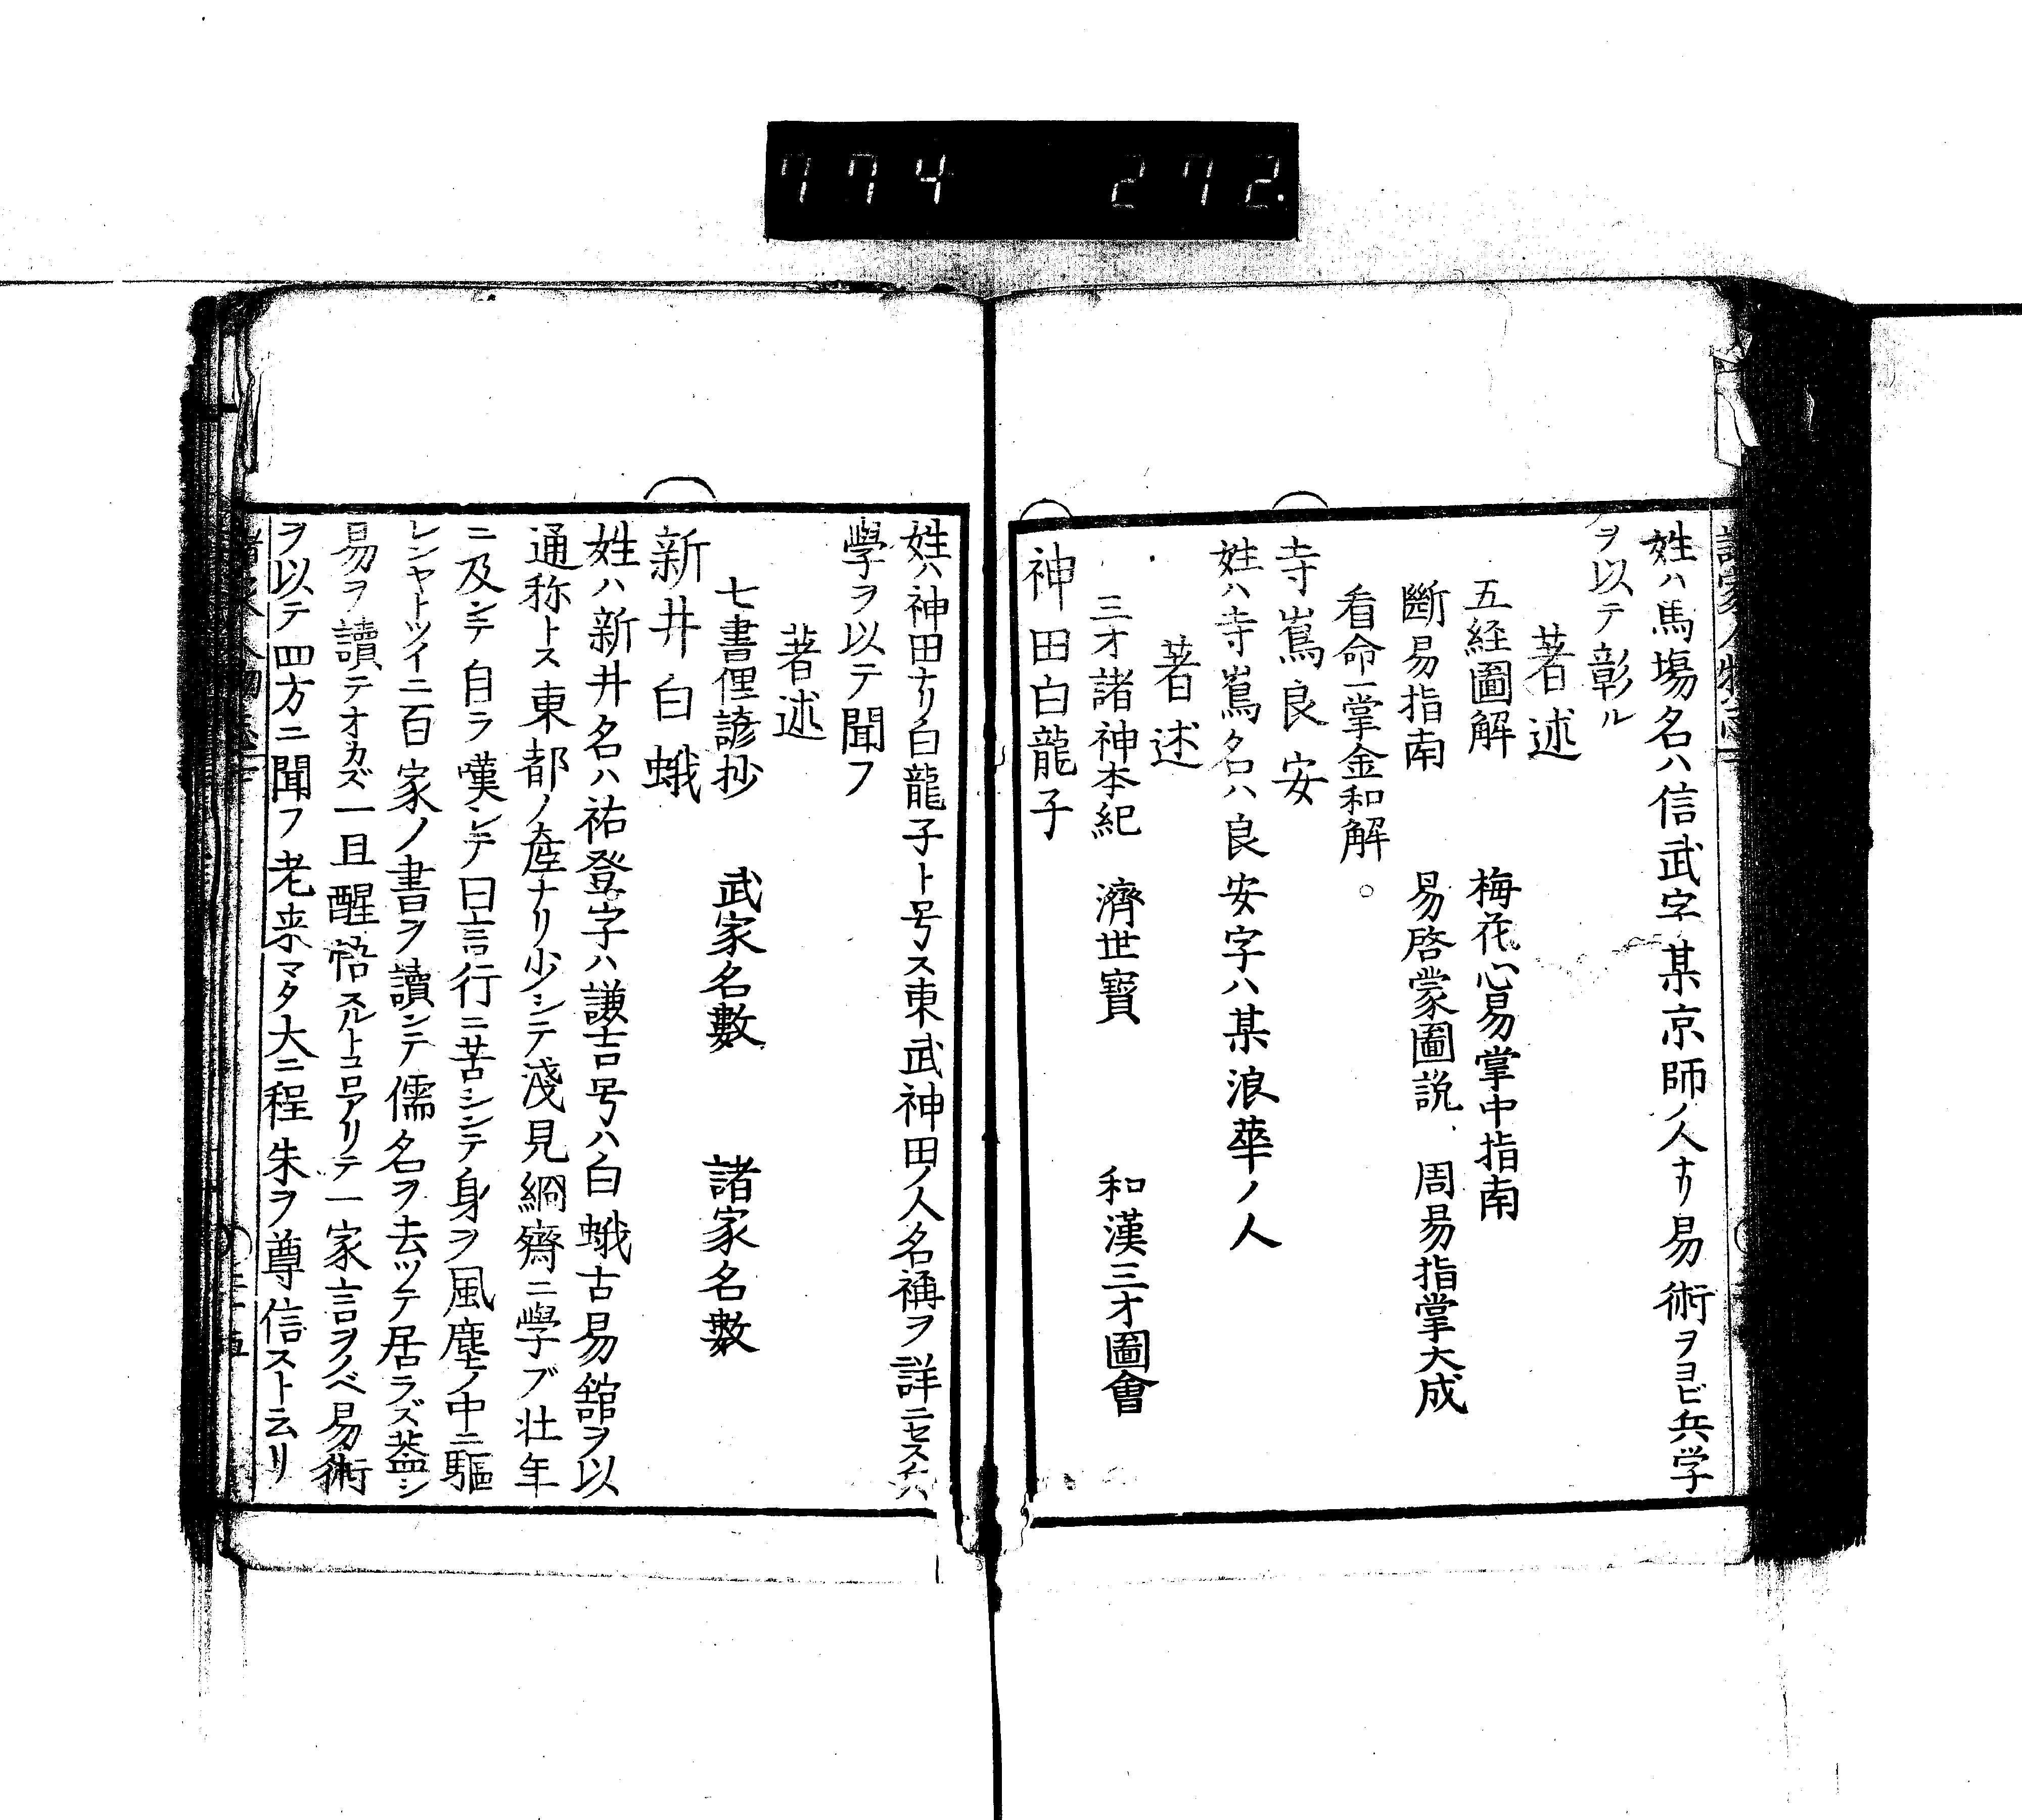 774 272.
姓ハ馬塲名ハ信武字某京師ノ人ナリ易術ヲヨビ兵学
ヲ以テ彰ル
著述
五経圖解 梅花心易掌中指南
斷易指南 易啓蒙圖説 周易指掌大成
看命一掌金和解。
寺嶌良安
姓ハ寺嶌名ハ良安字ハ某浪華ノ人
著述
三才諸神本紀 濟世寳 和漢三才圖會
神田白龍子
姓ハ神田ナリ白龍子ト号ス東武神田ノ人名稱ヲ詳ニセス兵
學ヲ以テ聞フ
著述
七書俚諺抄 武家名數 諸家名數
新井白蛾
姓ハ新井名ハ祐登字ハ謙吉号ハ白蛾古易舘ヲ以
通称トス東都ノ産ナリ少シテ淺見絅齋ニ學ブ壮年
ニ及ンテ自ラ嘆シテ曰言行ニ苦シンテ身ヲ風塵ノ中ニ驅
レンヤトツイニ百家ノ書ヲ讀ンテ儒名ヲ去ツテ居ラズ蓋シ
易ヲ讀テオカズ一旦醒悟スルトコロアリテ一家言ヲノベ易術
ヲ以テ四方ニ聞フ老来マタ大ニ程朱ヲ尊信スト云リ